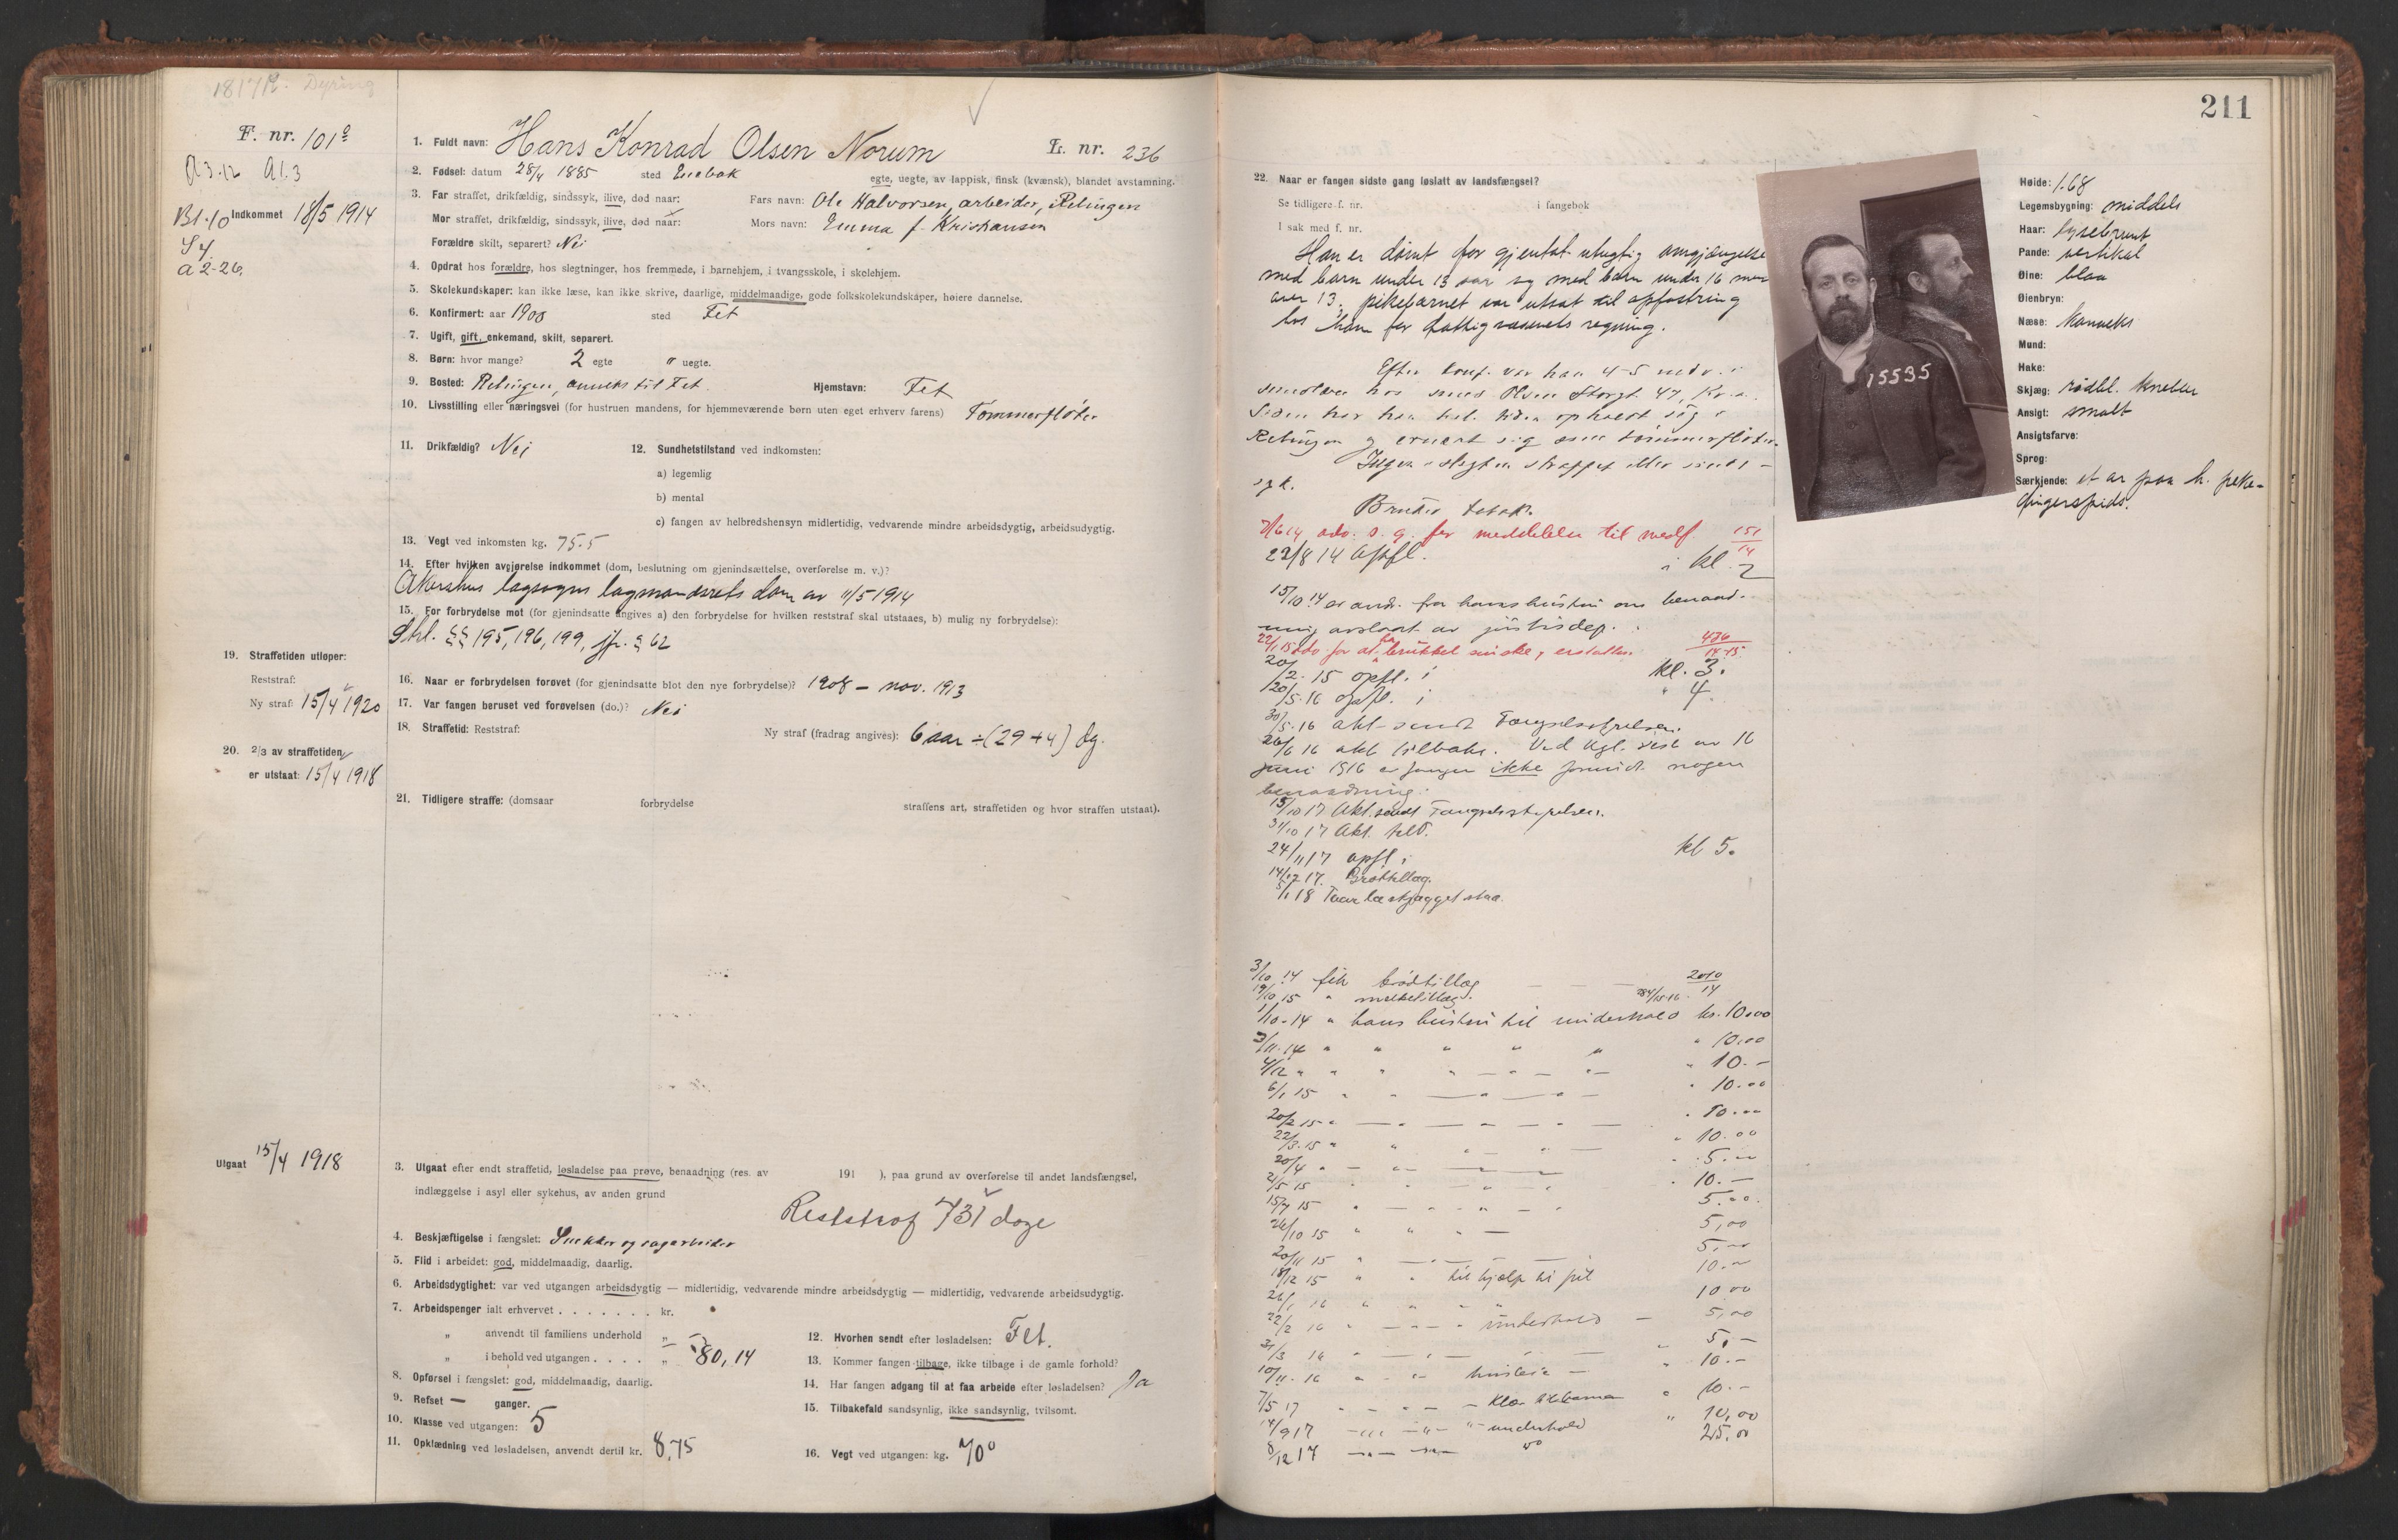 1817/12. Dyring
F. nr. 101⁰
A 3.12 A1.3
B1.10
S 4.
a 2-26.
Indkommet 18/5 1914
1. Fuldt navn: Hans Konrad Olsen Norum L. nr. 236
2. Fødsel: datum 28/4 1885 sted Enebak egte, uegte, av lappisk, finsk (kvænsk), blandet avstamning.
3. Far straffet, drikfældig, sindssyk, ilive, død naar: Fars navn: Ole Halvorsen, arbeider, Relingen
Mor straffet, drikfældig, sindssyk, ilive, død naar: Mors navn: Emma f. Kristiansen
Forældre skilt, separert? Nei
4. Opdrat hos forældre, hos slegtninger, hos fremmede, i barnehjem, i tvangsskole, i skolehjem.
5. Skolekundskaper: kan ikke læse, kan ikke skrive, daarlige, middelmaadige, gode folkskolekundskaper, høiere dannelse.
6. Konfirmert: aar 1900 sted Fet
7. Ugift, gift, enkemand, skilt, separert.
8. Børn: hvor mange? 2 egte " uegte.
9. Bosted: Relingen, anneks til Fet. Hjemstavn: Fet
10. Livsstilling eller næringsvei (for hustruen mandens, for hjemmeværende børn uten eget erhverv farens) Tømmerfløter
11. Drikfældig? Nei
12. Sundhetstilstand ved indkomsten:
a) legemlig
b) mental
c) fangen av helbredshensyn midlertidig, vedvarende mindre arbeidsdygtig, arbeidsudygtig.
13. Vegt ved inkomsten kg. 75.5
14. Efter hvilken avgjørelse indkommet (dom, beslutning om gjenindsættelse, overførelse m. v.)?
Akershus lagsogns lagmandsrets dom av 11/5 1914
15. For forbrydelse mot (for gjenindsatte angives a) den forbrydelse for hvilken reststraf skal utstaaes, b) mulig ny forbrydelse):
Strl. §§ 195, 196, 199, jfr. § 62
16. Naar er forbrydelsen forøvet (for gjenindsatte blot den nye forbrydelse)? 1908 - nov. 1913
17. Var fangen beruset ved forøvelsen (do.)? Nei
18. Straffetid: Reststraf: Ny straf (fradrag angives): 6 aar ÷ (29 + 4) dg.
19. Straffetiden utløper:
Reststraf:
Ny straf: 15/4 1920
20. 2/3 av straffetiden
er utstaat: 15/4 1918
21. Tidligere straffe: (domsaar forbrydelse straffens art, straffetiden og hvor straffen utstaat).
Utgaat 15/4 1918
3. Utgaat efter endt straffetid, løsladelse paa prøve, benaadning (res. av 191 ), paa grund av overførelse til andet landsfængsel,
indlæggelse i asyl eller sykehus, av anden grund
Reststraf 731 dage
4. Beskjæftigelse i fængslet: Snekker og sagarbeider
5. Flid i arbeidet: god, middelmaadig, daarlig.
6. Arbeidsdygtighet: var ved utgangen arbeidsdygtig — midlertidig, vedvarende mindre arbeidsdygtig — midlertidig, vedvarende arbeidsudygtig.
7. Arbeidspenger ialt erhvervet . . . . . . . kr.
" anvendt til familiens underhold "
" i behold ved utgangen . . . . " 80,14
8. Opførsel i fængslet: god, middelmaadig, daarlig.
9. Refset — ganger.
10. Klasse ved utgangen: 5
11. Opklædning ved løsladelsen, anvendt dertil kr. 8,75
12. Hvorhen sendt efter løsladelsen: Fet.
13. Kommer fangen tilbage, ikke tilbage i de gamle forhold?
14. Har fangen adgang til at faa arbeide efter løsladelsen? Ja
15. Tilbakefald sandsynlig, ikke sandsynlig, tvilsomt.
16. Vegt ved utgangen: kg. 70⁰
211
22. Naar er fangen sidste gang løslatt av landsfængsel?
Se tidligere f. nr. i fangebok
I sak med f. nr.
Han er dømt for gjentat utugtig omgjængelse
med barn under 13 aar og med barn under 16 men
over 13. pikebarnet var utsat til opfostring
hos ham for fattigvæsenets regning.
Efter konf. var han 4-5 mdr. i
smedlære hos smed Olsen Storgt. 47, Kr.a.
Siden har han hele tiden opholdt sig i
Relingen og ernært sig som tømmerfløter.
Ingen i slegten straffet eller sinds-
syk.
Bruker tobak.
7/6 14 adv. s. g. for meddelelse til medf. 151/14
23/8 14 opfl. i kl. 2
15/10 14 er andr. fra hans hustru om benaad-
ning avslaat av justisdep.
22/1 15 adv. for at ha brukket en ske, erstattes. 436/14-15
20/2.15 opfl. i kl. 3.
20/5.16 opfl. i " 4.
30/5.16 akt sendt Fængselsstyrelsen.
26/6 16 akt tilbake. Ved kgl. res. av 16
juni 1916 er fangen ikke forundt nogen
benaadning.
15/10 17 Akt. sendt Fængselsstyrelsen.
31/10 17 Akt. tilb.
24/11 17 opfl. i kl 5.
14/12 17. Brødtillæg.
5/1 18 Faar la skjægget staa.
3/10 14 fik brødtillæg — — — 2010/14
19/10 15 " melketillæg. 284/15-16.
1/10-14 " hans hustru til underhold kr. 10.00
3/11.14 " " " " " " 10,00
4/12 " " " " — " — " 10.-
6/1 15 " " — " — " — " 10.00
20/2 15 " — " — " — . 10.00
22/3.15 " " " — " — " 10.00
20/4 " — " — 5.00
2/5 15 " — " — " 10.—
15/7 15 " — " — " — 5.00.
26/10 15 " " " — 5,00
20/11 15 " — " — 5,00
18/12 15 " " til hjælp til jul 10.00
26/1 16 " " " " 10 00
22/2 16 " — " — " underhold — 5,00
31/3 16 " — " — 5,—
10/11.16 " — " — husleie — " 10.—
7/5 17 " — " — klær til barna " 10.—
14/9 17 — " — " — " — underhold " 10,00
8/12 17 — " — — " — do 25.00
15535
Høide: 1.68
Legemsbygning: middels
Haar: lysebrunt
Pande: vertikal
Øine: blaa
Øienbryn:
Næse: konveks
Mund:
Hake:
Skjæg: rødbl. knebler
Ansigt: smalt
Ansigtsfarve:
Sprog:
Særkjende: et ar paa h. peke-
fingerspids.